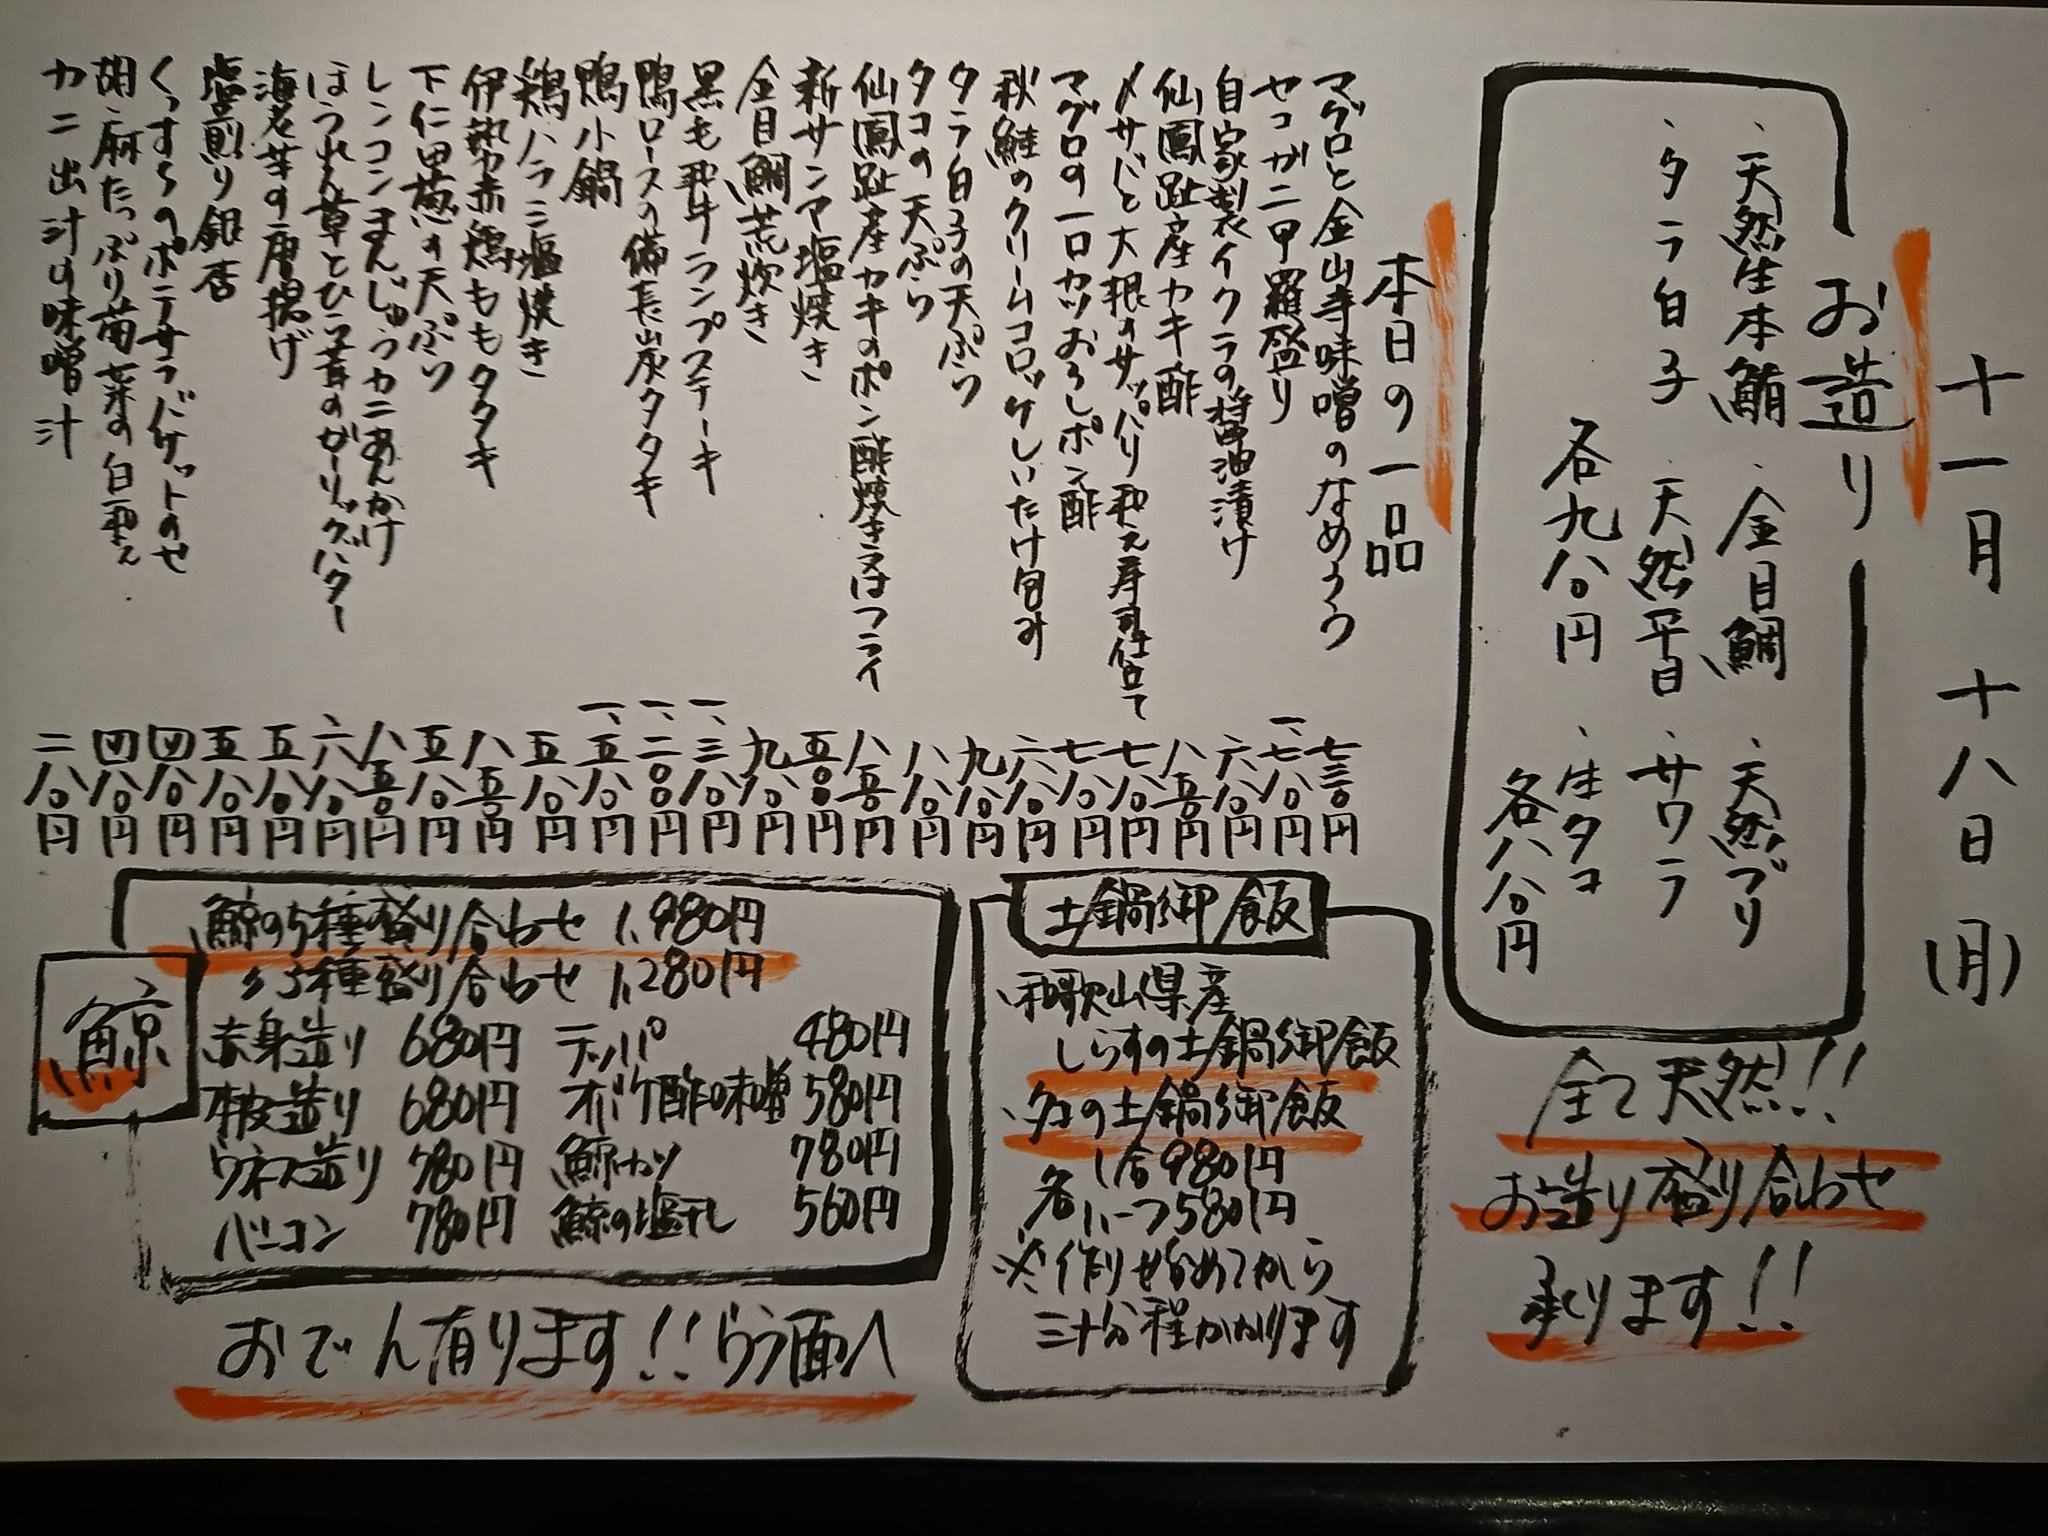 十一月 十八日(月)
お造り
・天然生本鮪 ・金目鯛 ・天然ブリ
・タラ白子 ・天然平目 ・サワラ
・生タコ
各九八〇円
各八八〇円
全て天然!!
お造り盛り合わせ
承ります!!
本日の一品
マグロと金山寺味噌のなめろう 七三〇円
セコガニ甲羅盛り 一、七八〇円
自家製イクラの醤油漬け 六八〇円
仙鳳趾産カキ酢 八五〇円
〆サバと大根のサッパリ和え寿司仕立て 七八〇円
マグロの一口カツおろしポン酢 七八〇円
秋鮭のクリームコロッケしいたけ包み 六八〇円
タラ白子の天ぷら 九八〇円
タコの天ぷら 八八〇円
仙鳳趾産カキのポン酢焼き又はフライ 八五〇円
新サンマ塩焼き 五〇〇円
金目鯛荒炊き 九八〇円
黒毛和牛ランプステーキ 一、三八〇円
鴨ロースの備長炭タタキ 一、二〇〇円
鴨小鍋 一、五八〇円
鶏ハラミ塩焼き 五八〇円
伊勢赤鶏ももタタキ 八五〇円
下仁田葱の天ぷら 五八〇円
レンコンまんじゅうカニあんかけ 八五〇円
ほうれん草とひら茸のガーリックバター 六八〇円
海老芋の唐揚げ 五八〇円
塩煎り銀杏 五八〇円
くつすらのポテサラバケットのせ 四八〇円
胡麻たっぷり菊菜の白和え 四八〇円
カニ出汁の味噌汁 二八〇円
土鍋御飯
・和歌山県産
しらすの土鍋御飯
・タコの土鍋御飯
各 1合980円
ハーフ580円
※作り始めてから
三十分程かかります
鯨
鯨の5種盛り合わせ 1,980円
〃3種盛り合わせ 1,280円
赤身造り 680円 テッパ 480円
本皮造り 680円 オバケ酢味噌 580円
ウネス造り 780円 鯨カツ 780円
ベーコン 780円 鯨の塩干し 560円
おでん有ります!!うら面へ